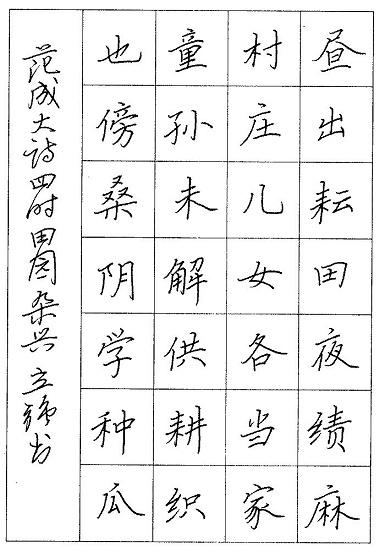 昼出耘田夜绩麻
村庄儿女各当家
童孙未解供耕织
也傍桑阴学种瓜
范成大诗四时田园杂兴 立强书